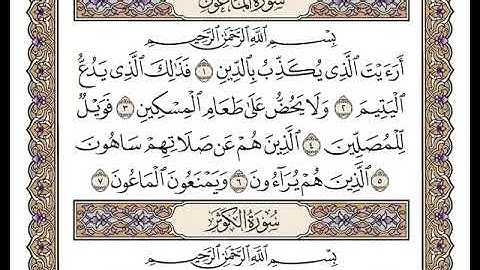 سُورَةُ المَاعُونِ
بِسْمِ اللَّهِ الرَّحْمَٰنِ الرَّحِيمِ
أَرَءَيْتَ الَّذِي يُكَذِّبُ بِالدِّينِ ١ فَذَٰلِكَ الَّذِي يَدُعُّ
الْيَتِيمَ ٢ وَلَا يَحُضُّ عَلَىٰ طَعَامِ الْمِسْكِينِ ٣ فَوَيْلٌ
لِّلْمُصَلِّينَ ٤ الَّذِينَ هُمْ عَن صَلَاتِهِمْ سَاهُونَ
٥ الَّذِينَ هُمْ يُرَآءُونَ ٦ وَيَمْنَعُونَ الْمَاعُونَ ٧
سُورَةُ الكَوْثَرِ
بِسْمِ اللَّهِ الرَّحْمَٰنِ الرَّحِيمِ